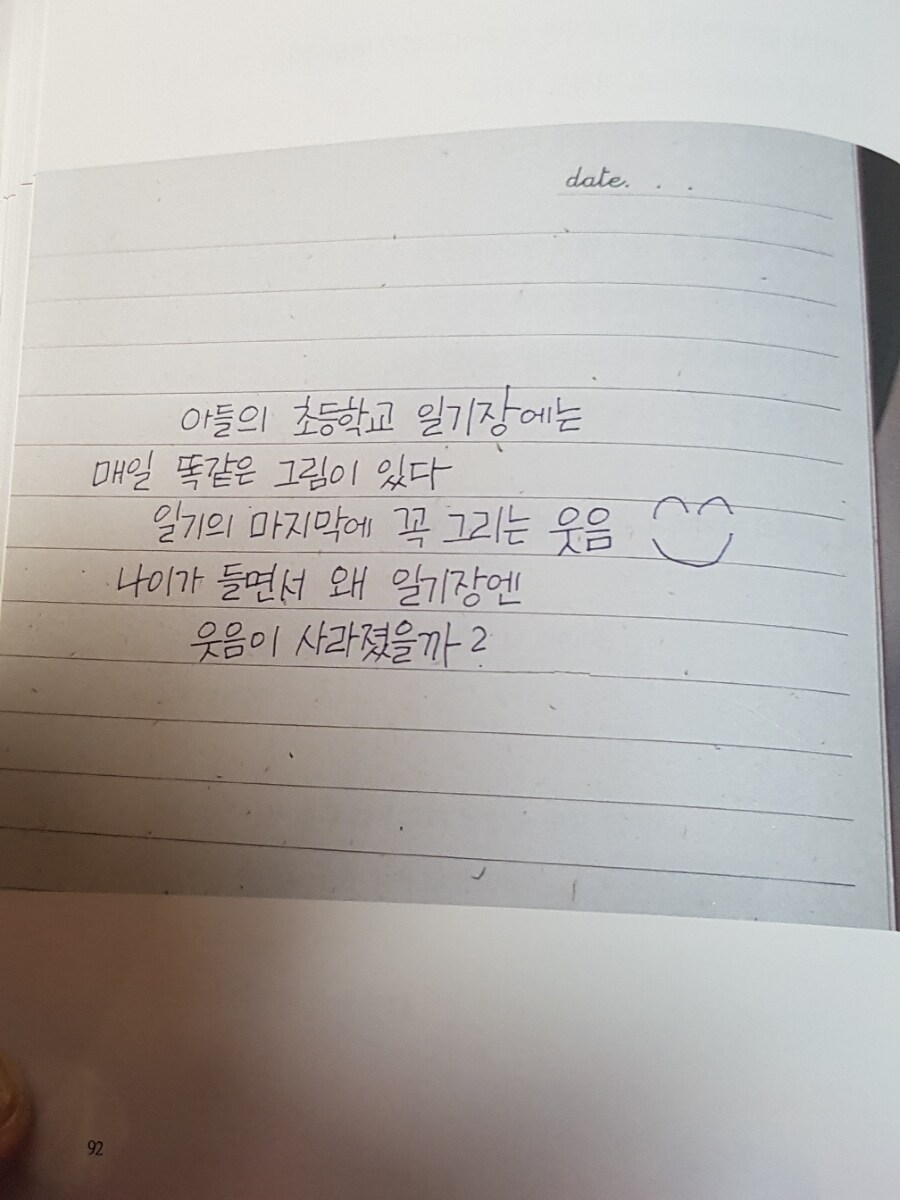 date. . .
아들의 초등학교 일기장에는
매일 똑같은 그림이 있다
일기의 마지막에 꼭 그리는 웃음
나이가 들면서 왜 일기장엔
웃음이 사라졌을까?
92